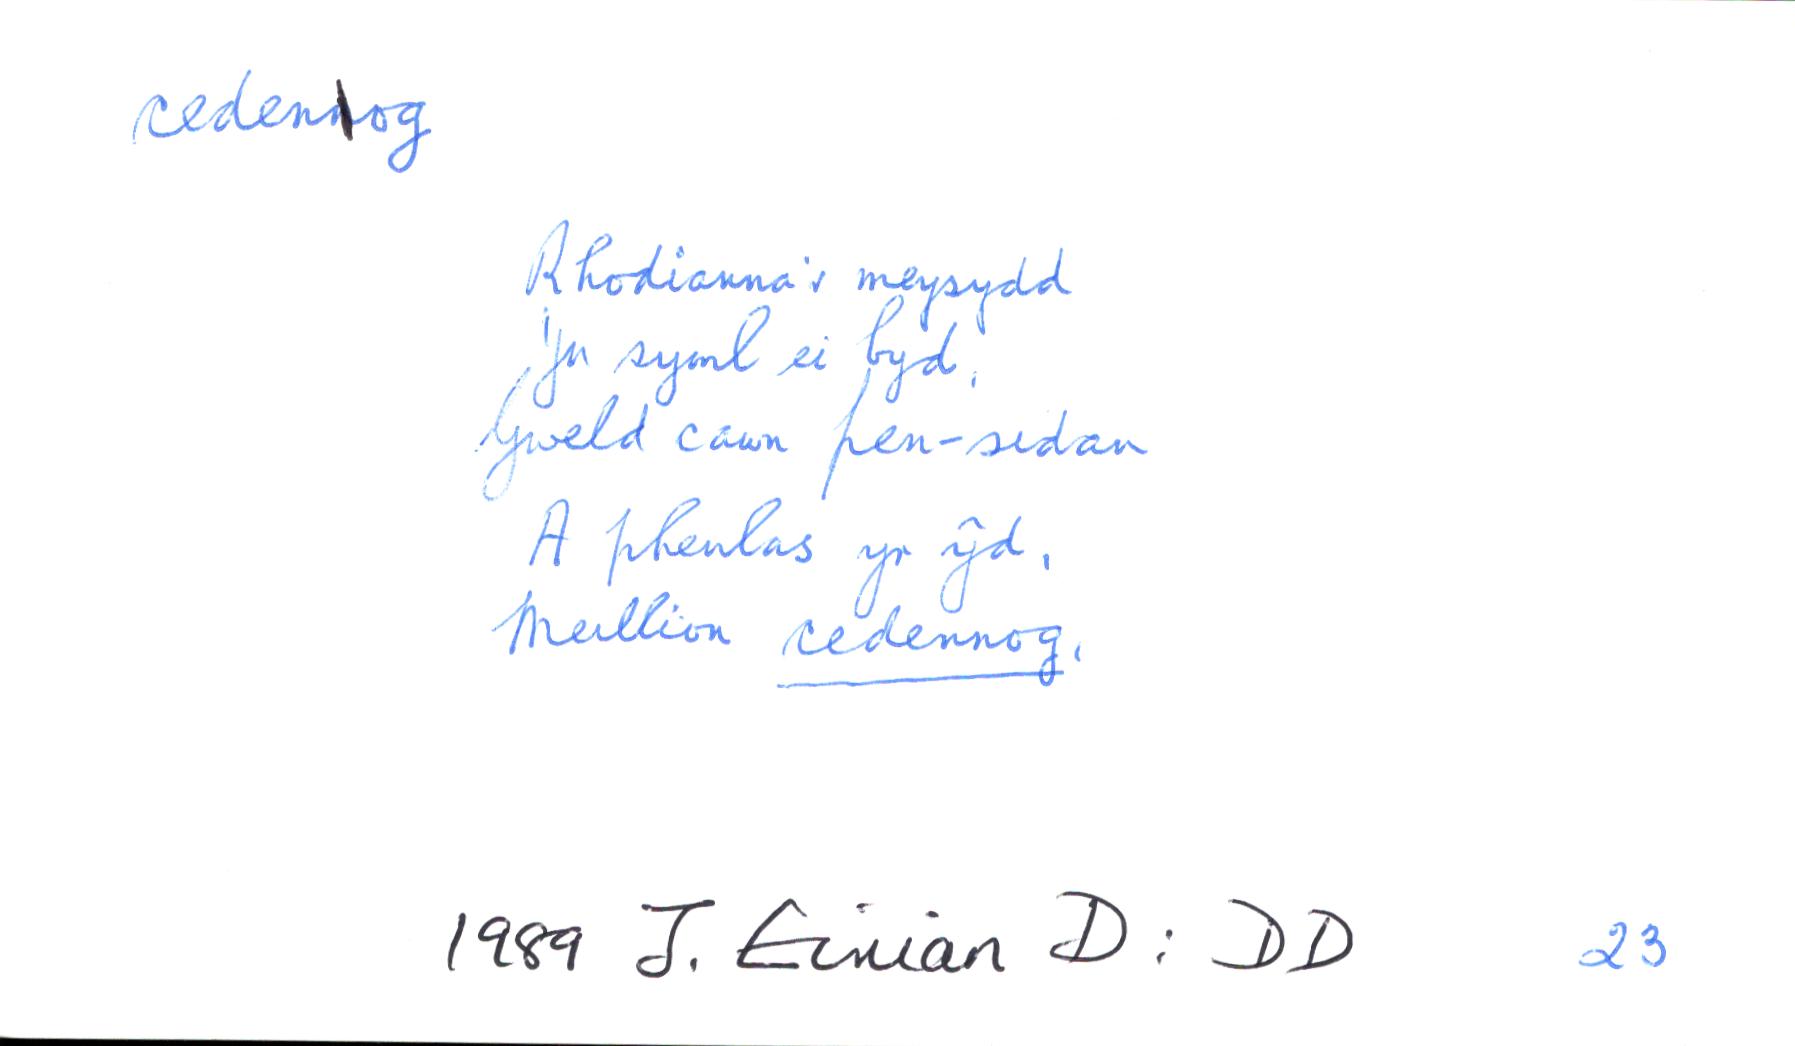 cedennog
Rhodianna'r meysydd
Yn syml ei byd,
Gweld cawn pen-sidan
A phenlas yr ŷd,
Meillion cedennog,
1989 J. Einian D: DD 23